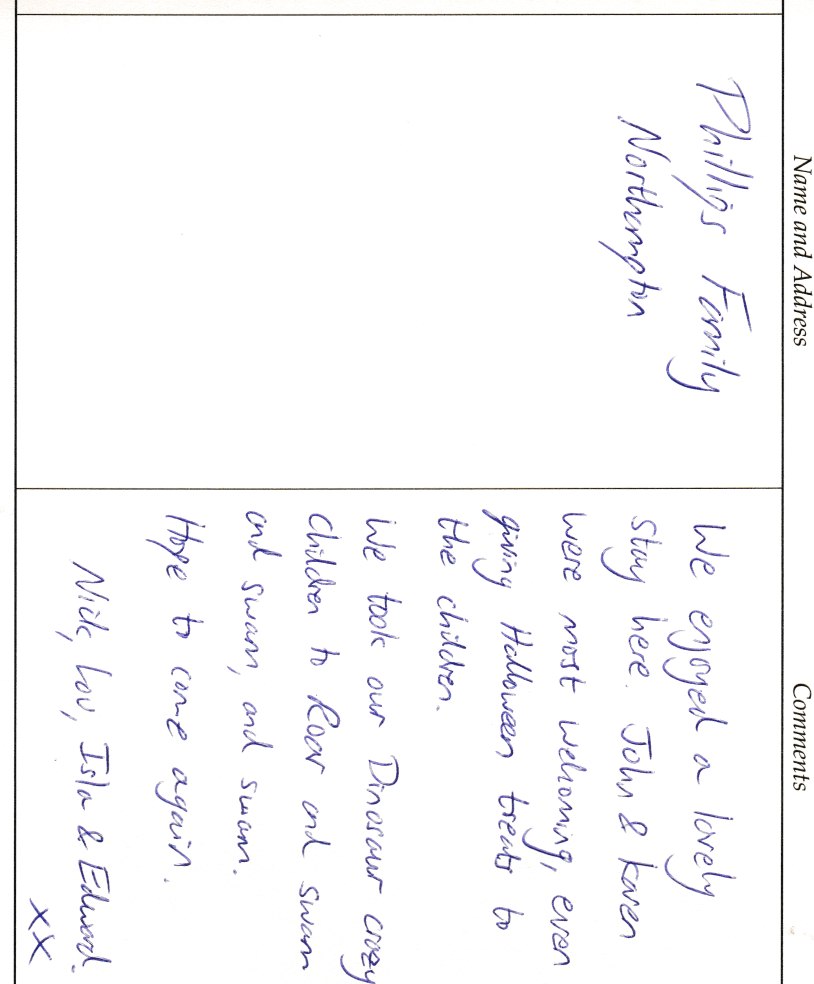 Name and Address
Comments
Phillips Family
Northampton
We enjoyed a lovely
stay here. John & Karen
were most welcoming, even
giving Halloween treats to
the children.
We took our Dinosaur crazy
children to Roar and swam
and swam, and swam.
Hope to come again.
Nick, Lou, Isla & Edward.
XX